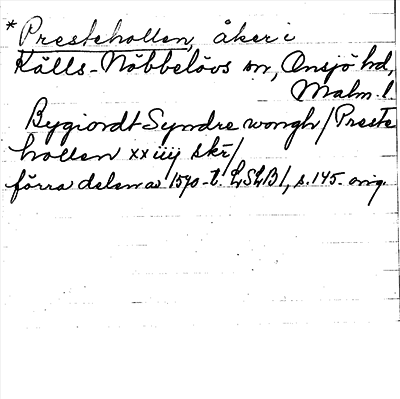 * Prestehollen, åker i
Källs-Nöbbelövs sn, Onsjö hd,
Malm. l
Bygiordt Syndre wongh / Preste
hollen xx iiij skr /
förra delen av 1570-t. LSLB1, s. 145. orig.